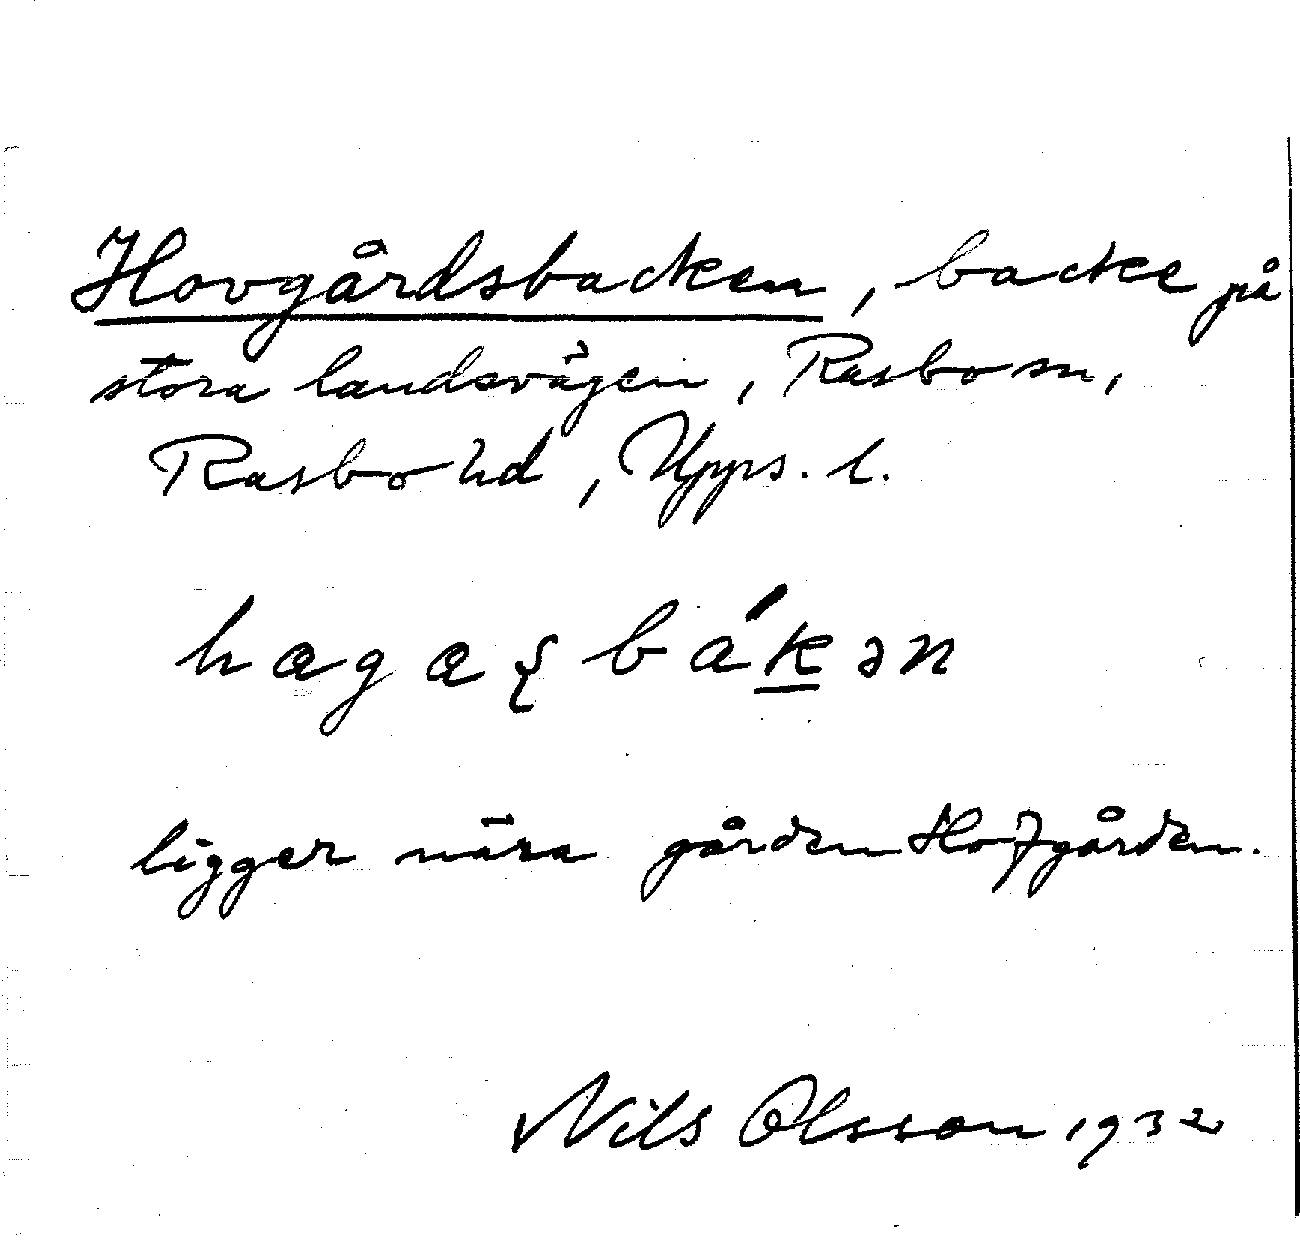 Hovgårdsbacken, backe på
stora landsvägen, Rasbo sn,
Rasbo hd, Upps. l.
hagaʂbákən
ligger nära gården Hofgården.
Nils Olsson 1932